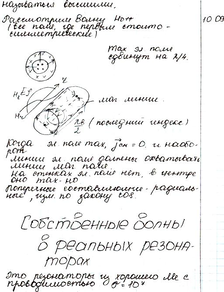 называются высшими.
Рассмотрим волну H₀₁₁
10.09
(все поля, где первым стоит 0 -
симметрические)
max эл поля
сдвинут на λ/4.
маг линии
(последний индекс)
Когда эл поля max, jсм = 0, и наобо-
рот.
линии эл поля должны охватывать
линии маг поля
на стенках эл поля нет, в центре
оно тах-но
поперечные составляющие - радиаль-
но, идут по закону cos.
Собственные волны
в реальных резона-
торах
Это резонаторы из хорошего Me с
проводимостью σ = 10⁷